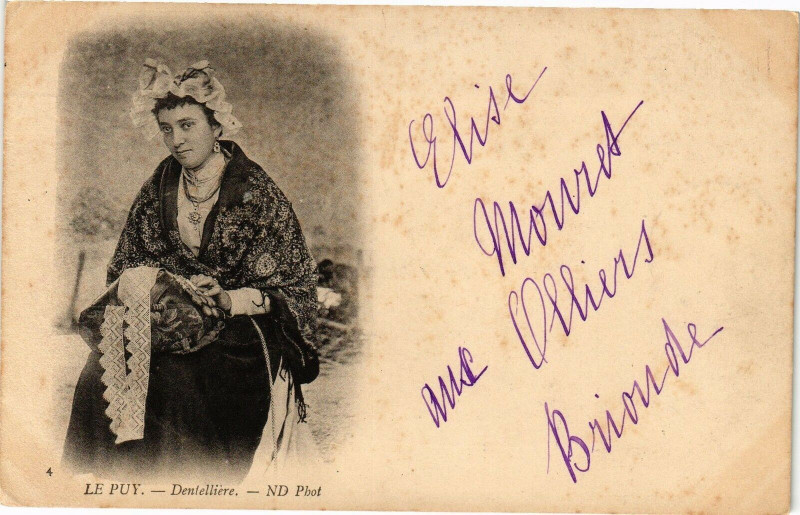 Elise
Mouret
aux Olliers
Brioude
4
LE PUY. — Dentellière. — ND Phot